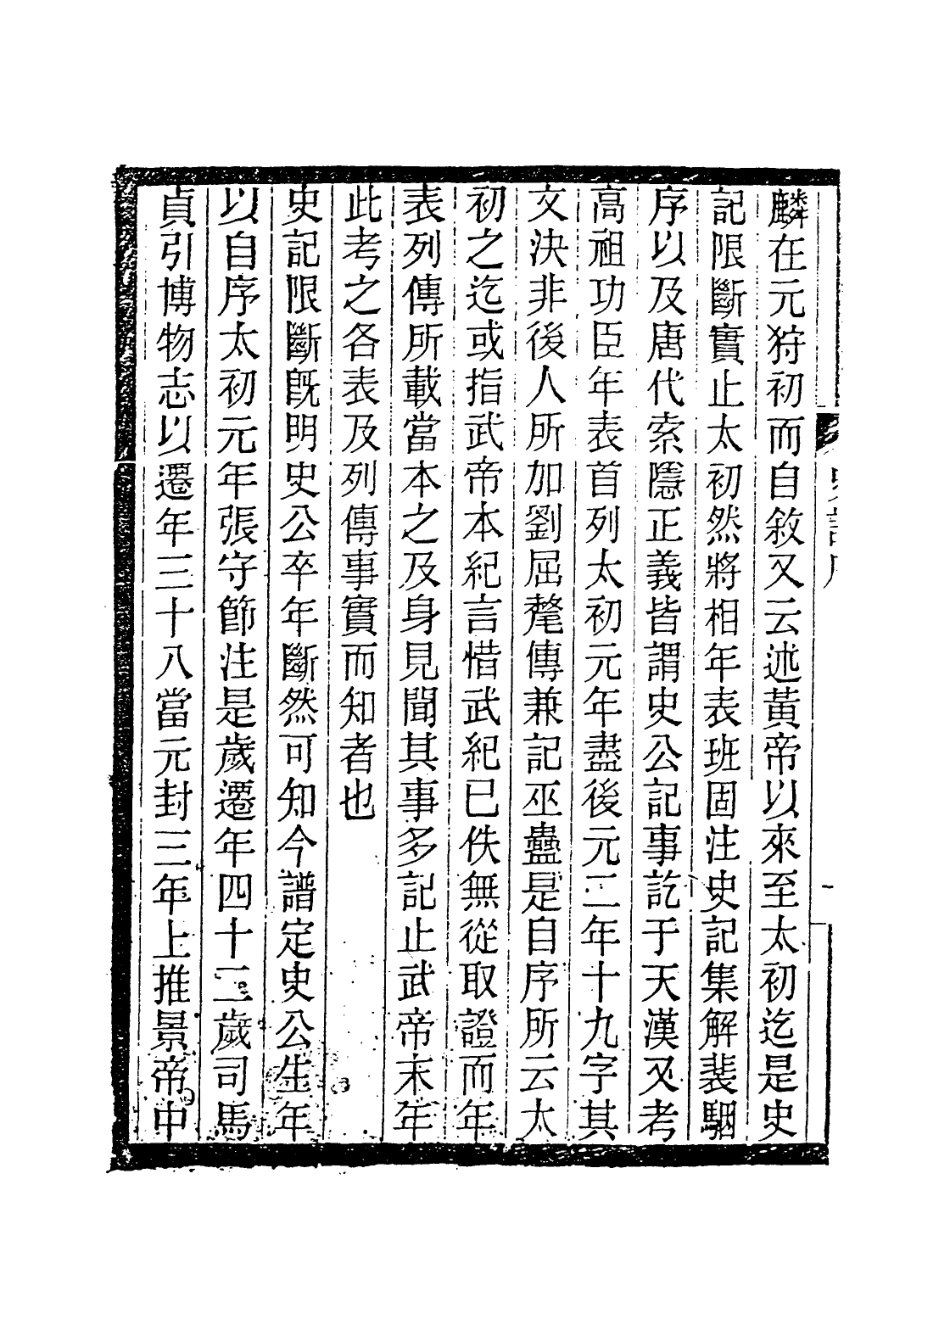 麟在元狩初而自敘又云述黃帝以來至太初迄是史
記限斷實止太初然將相年表班固注史記集解裴駰
序以及唐代索隱正義皆謂史公記事訖于天漢又考
高祖功臣年表首列太初元年盡後元二年十九字其
文決非後人所加劉屈氂傳兼記巫蠱是自序所云太
初之迄或指武帝本紀言惜武紀已佚無從取證而年
表列傳所載當本之及身見聞其事多記止武帝末年
此考之各表及列傳事實而知者也
史記限斷既明史公卒年斷然可知今譜定史公生年
以自序太初元年張守節注是歲遷年四十二歲司馬
貞引博物志以遷年三十八當元封三年上推景帝中